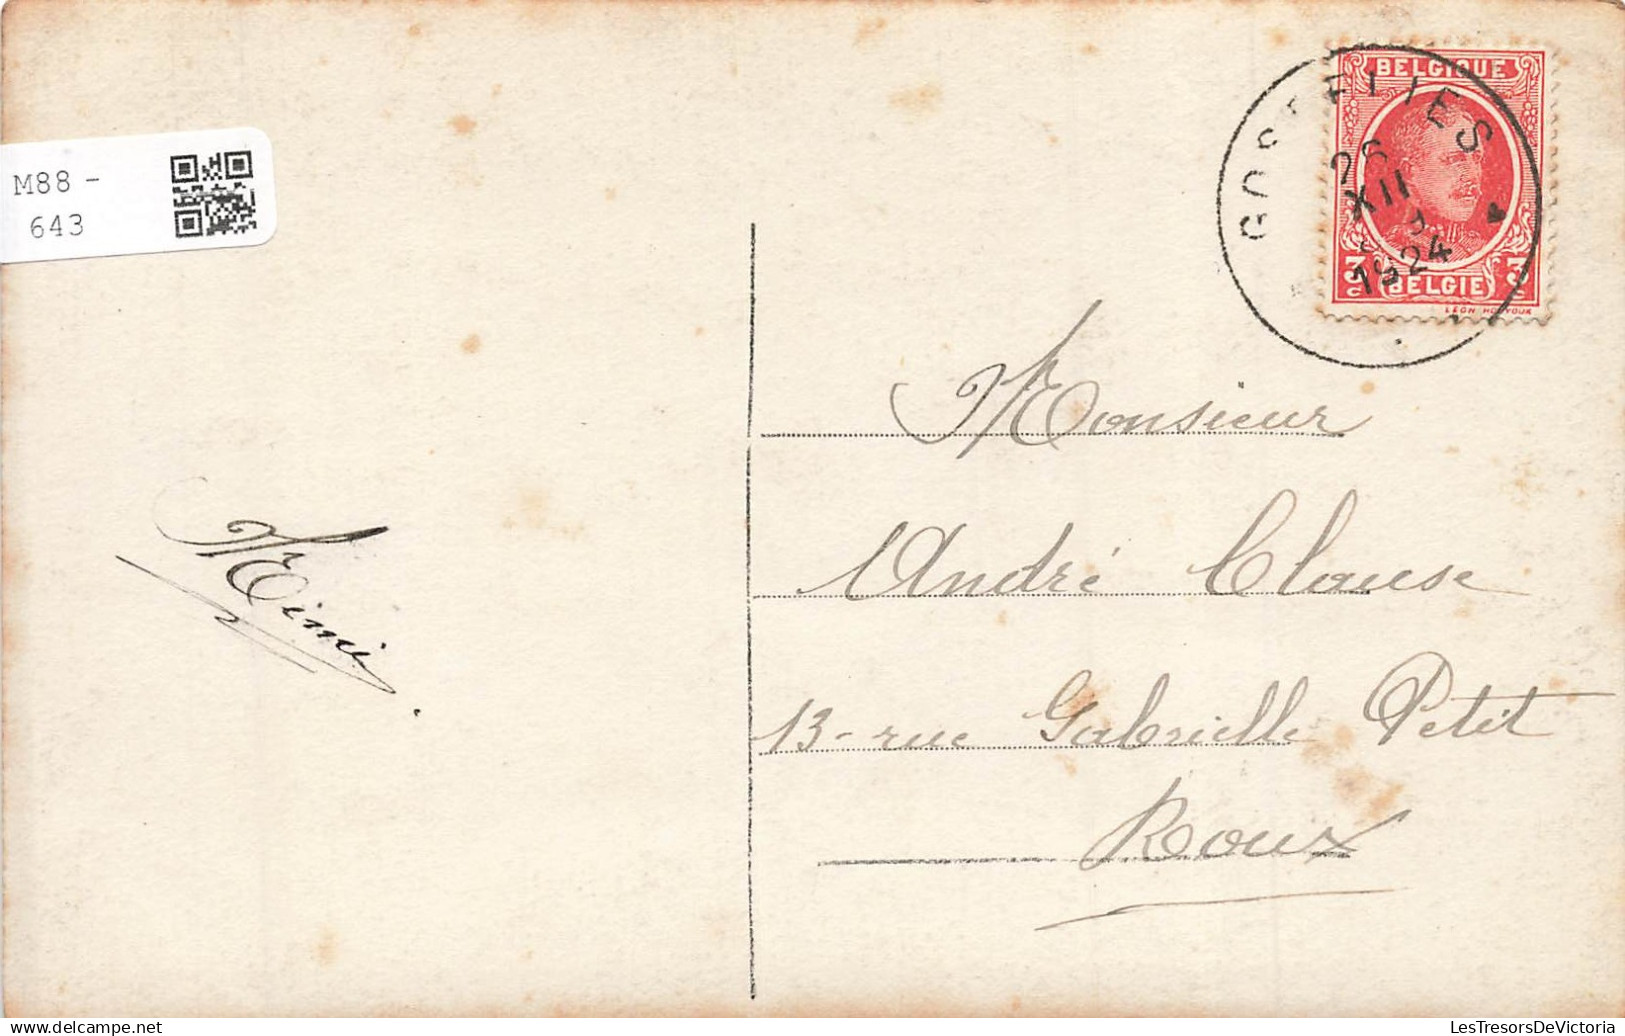 M88 -
643
GOSSELIES
26
XII
1924
BELGIQUE
3c BELGIE 3c
LEON HOUYOUX
Monsieur
André Clause
13 - rue Gabrielle Petit
Roux
Mimi.
delcampe.net
LesTresorsDeVictoria